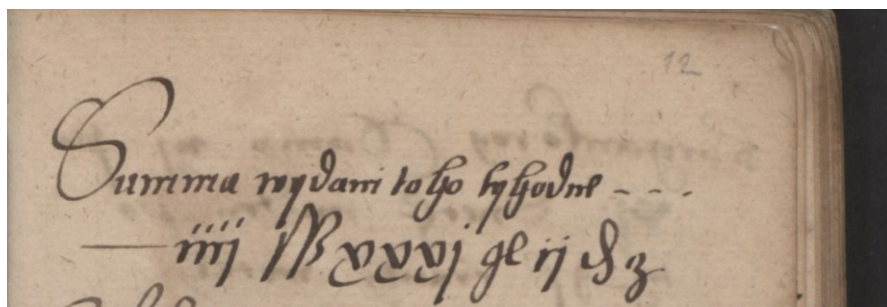 12
Summa wydani toho tyhodne - - -
— iiij ßß xxxj gl ij d z